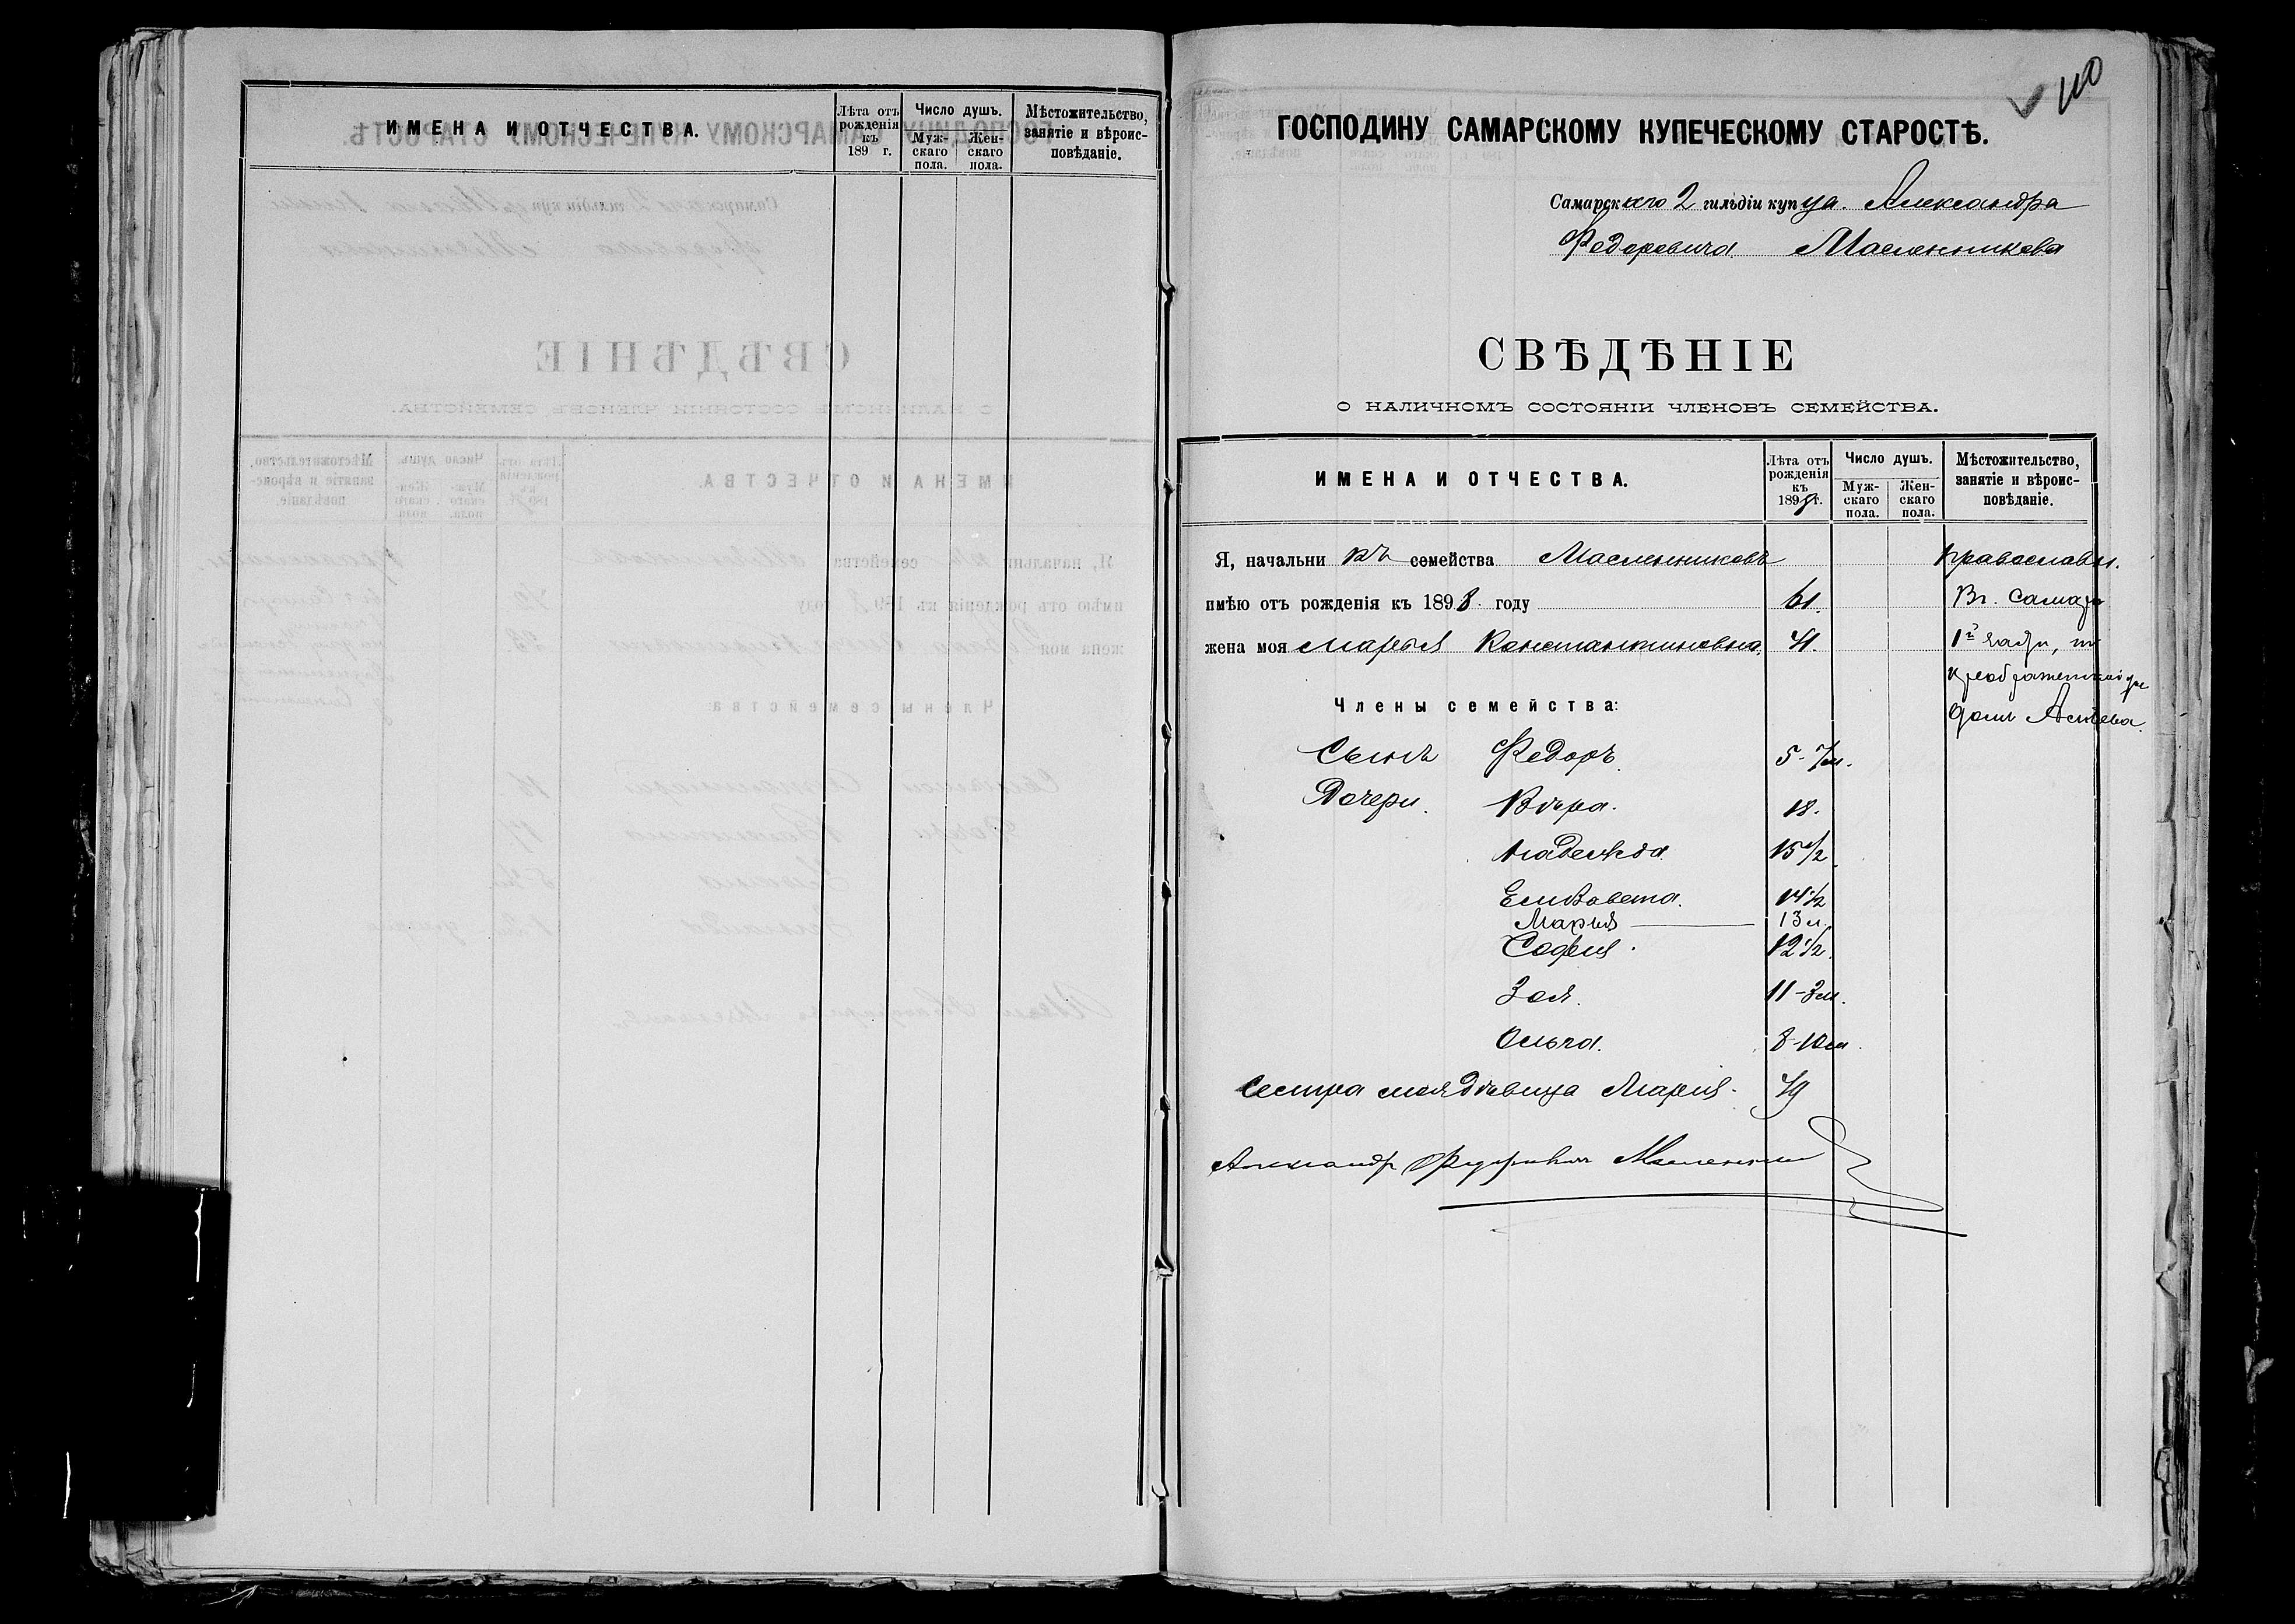 ИМЕНА И ОТЧЕСТВА.
Лѣта отъ рожденія къ 189 г.
Число душъ.
Муж-скаго пола.
Жен-скаго пола.
Мѣстожительство, занятіе и вѣроис-повѣданіе.
110
ГОСПОДИНУ САМАРСКОМУ КУПЕЧЕСКОМУ СТАРОСТѢ.
Самарскаго 2 гильдіи купца Александра
Федоровича Масленникова
СВѢДѢНІЕ
О НАЛИЧНОМЪ СОСТОЯНІИ ЧЛЕНОВЪ СЕМЕЙСТВА.
ИМЕНА И ОТЧЕСТВА.
Лѣта отъ рожденія къ 1898 г.
Число душъ.
Муж-скаго пола.
Жен-скаго пола.
Мѣстожительство, занятіе и вѣроис-повѣданіе.
Я, начальникъ семейства Масленниковъ Православн.
имѣю отъ рожденія къ 1898 году 61. Въ г. Самаре
жена моя Марья Константиновна 41. 1й части, по
Преображенской ул
Члены семейства: домъ
Сынъ Федоръ 5-7м.
Дочери Вѣра. 18.
Надежда 15 1/2
Елизавета. 14 1/2
Марья 13 л.
Софья 12 1/2.
Зоя. 11-3м.
Ольга. 8-10м.
Сестра моя дѣвица Марья 49
Александр Федорович Масленников